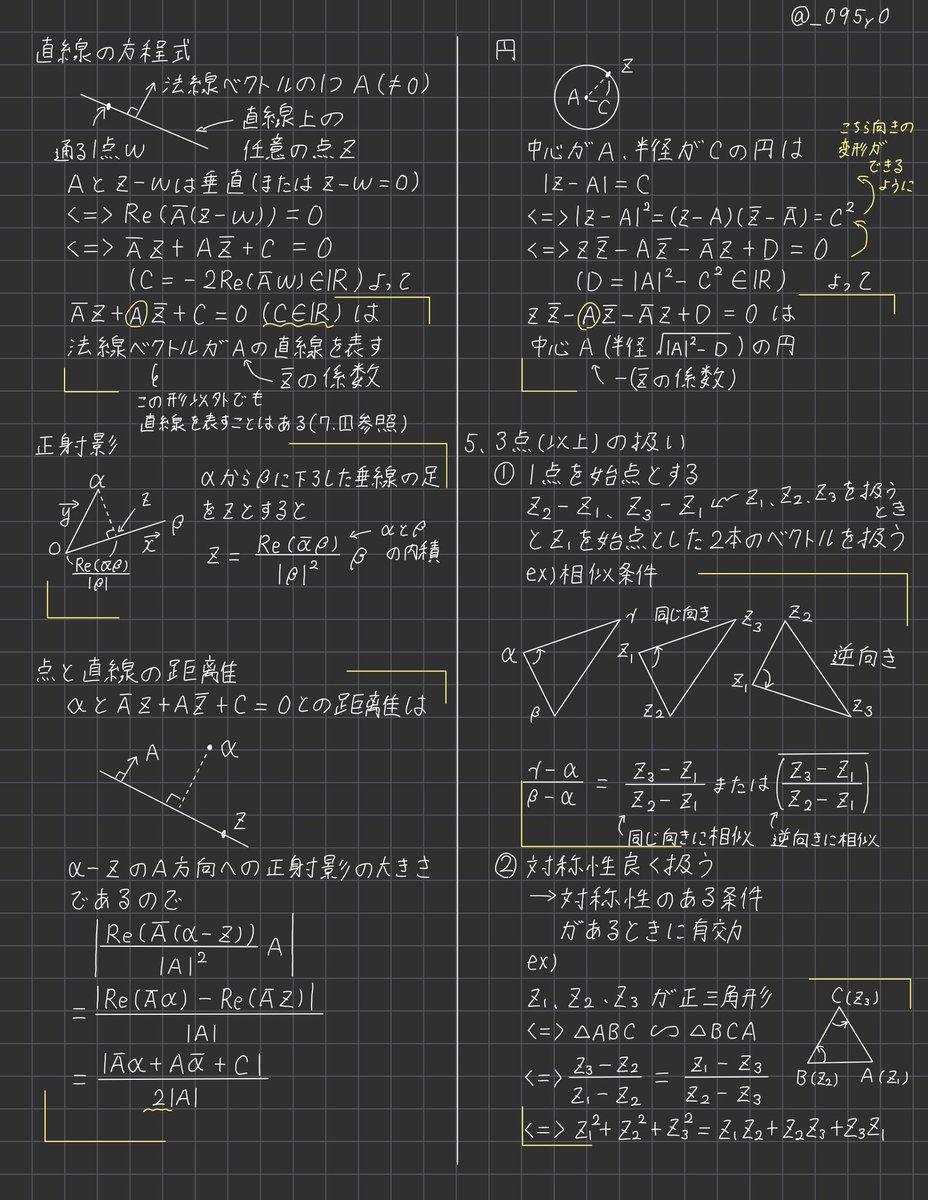 @_095r0
直線の方程式
法線ベクトルの1つ A(≠0)
直線上の
任意の点z
通る1点w
Aとz-wは垂直(またはz-w=0)
<=> Re(A̅(z-w))=0
<=> A̅z+Az̅+C=0
(C=-2Re(A̅w)∈ℝ)よって
A̅z+Az̅+C=0(C∈ℝ)は
法線ベクトルがAの直線を表す
z̅の係数
この形以外でも
直線を表すことはある(7.①参照)
正射影
α
y
z
β
x
O
Re(α̅β)/|β|
αからβに下ろした垂線の足
をzとすると
z = Re(α̅β)/|β|² β
αとβ
の内積
点と直線の距離
αとA̅z+Az̅+C=0との距離は
A
α
z
α-zのA方向への正射影の大きさ
であるので
|Re(A̅(α-z))/|A|² A|
= |Re(A̅α)-Re(A̅z)|/|A|
= |A̅α+Aα̅+C|/2|A|
円
z
A
C
中心がA、半径がCの円は
|z-A|=C
<=>|z-A|²=(z-A)(z̅-A̅)=C²
<=>zz̅-Az̅-A̅z+D=0
(D=|A|²-C²∈ℝ) よって
こちら向きの
変形が
できる
ように
zz̅-Az̅-A̅z+D=0は
中心A(半径√|A|²-D)の円
-(z̅の係数)
5、3点(以上)の扱い
① 1点を始点とする
z₂-z₁、z₃-z₁ ← z₁、z₂、z₃を扱う
とき
とz₁を始点とした2本のベクトルを扱う
ex)相似条件
γ
同じ向き
z₃
z₂
α
z₁
z₁
逆向き
β
z₂
z₃
γ-α/β-α = z₃-z₁/z₂-z₁ または (z₃-z₁/z₂-z₁)̅
同じ向きに相似
逆向きに相似
② 対称性良く扱う
→対称性のある条件
があるときに有効
ex)
z₁、z₂、z₃が正三角形
<=> △ABC ∽ △BCA
<=> z₃-z₂/z₁-z₂ = z₁-z₃/z₂-z₃
<=> z₁²+z₂²+z₃²=z₁z₂+z₂z₃+z₃z₁
C(z₃)
B(z₂)
A(z₁)